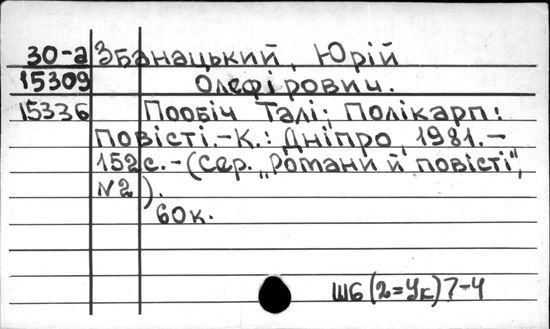 30-а Збанацький, Юрій
15309 Олефірович.
15336 Пообіч Талі; Полікарп:
Повісті.-К.: Дніпро, 1981.-
152с.-(Сер. „Романи й повісті",
№2).
60к.
ШБ(2=Ук)7-4